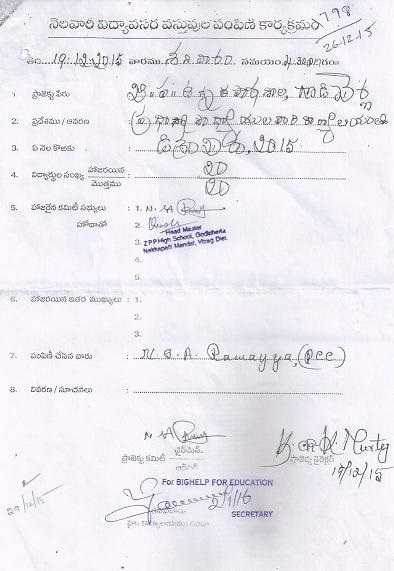 నెలవారీ విద్యావసర వస్తువుల పంపిణీ కార్యక్రమం
798
26-12-15
తేది: 19.12.2015 వారము శనివారం సమయం
1. ప్రాజెక్టు పేరు : జి.ప. ఉన్నత పాఠశాల, గొడిచెర్ల
2. ప్రదేశము / ఆవరణ : ప్రధానోపాధ్యాయులవారి కార్యాలయం
3. ఏ నెల కొఱకు : డిశంబరు, 2015
4. విద్యార్థుల సంఖ్య హాజరయిన : 20
మొత్తము 20
5. హాజరైన కమిటీ సభ్యులు : 1. N. SA
హోదాతో 2.
Head Master
3. ZPP High School, Godicherla
Nakkapalli Mandal, Vizag Dist.
4.
5.
6. హాజరయిన ఇతర ముఖ్యులు : 1.
2.
3.
7. పంపిణీ చేసిన వారు : N. S. A. Ramayya, (PCC)
8. వివరణ / సూచనలు :
N. SA
ప్రాజెక్టు కమిటీ చైర్‌మెన్
ఆడిటర్
K. Murty
ప్రాజెక్టు డైరెక్టర్
19/12/15
29/12/15
For BIGHELP FOR EDUCATION
2/1/16
SECRETARY